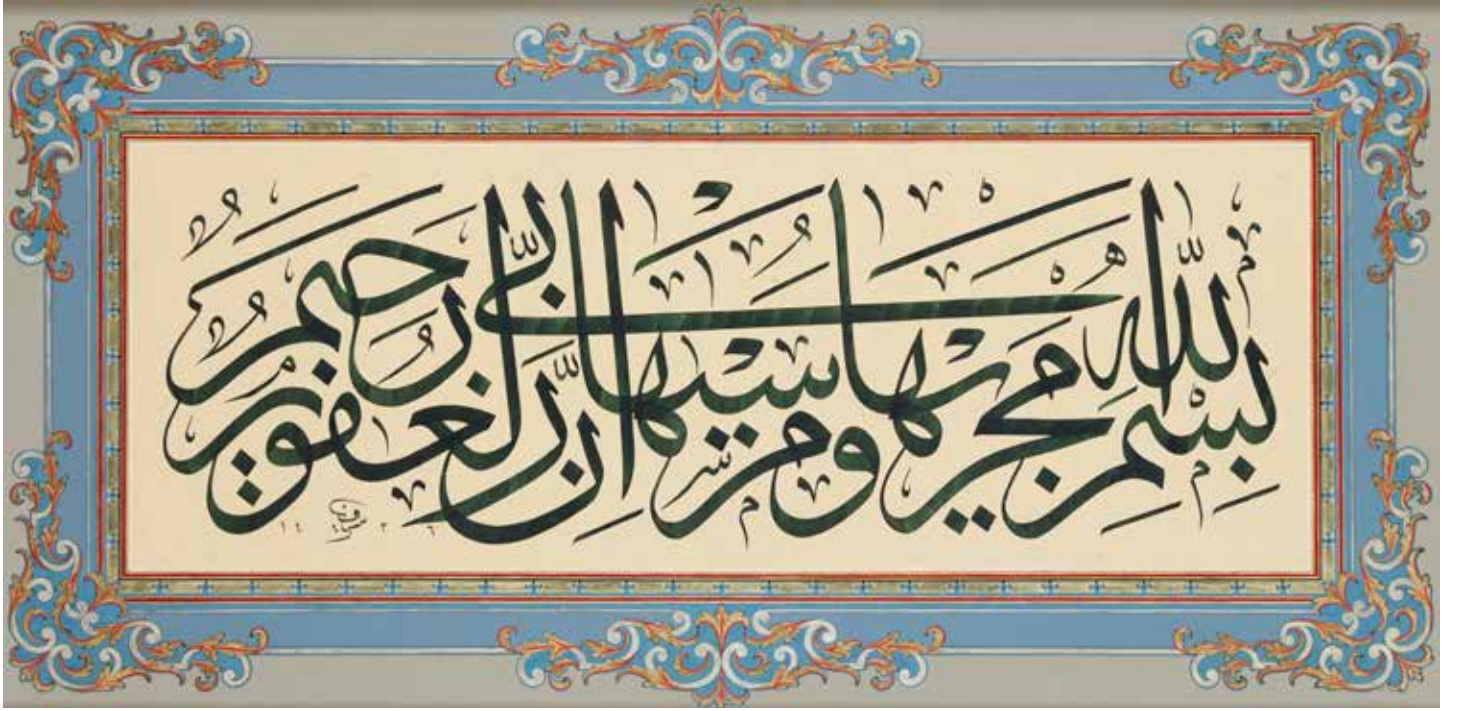 بِسْمِ اللّٰهِ مَجْرٰۭىهَا وَمُرْسٰىهَا اِنَّ رَبّٖى لَغَفُورٌ رَحٖيمٌ
١٤٢٦